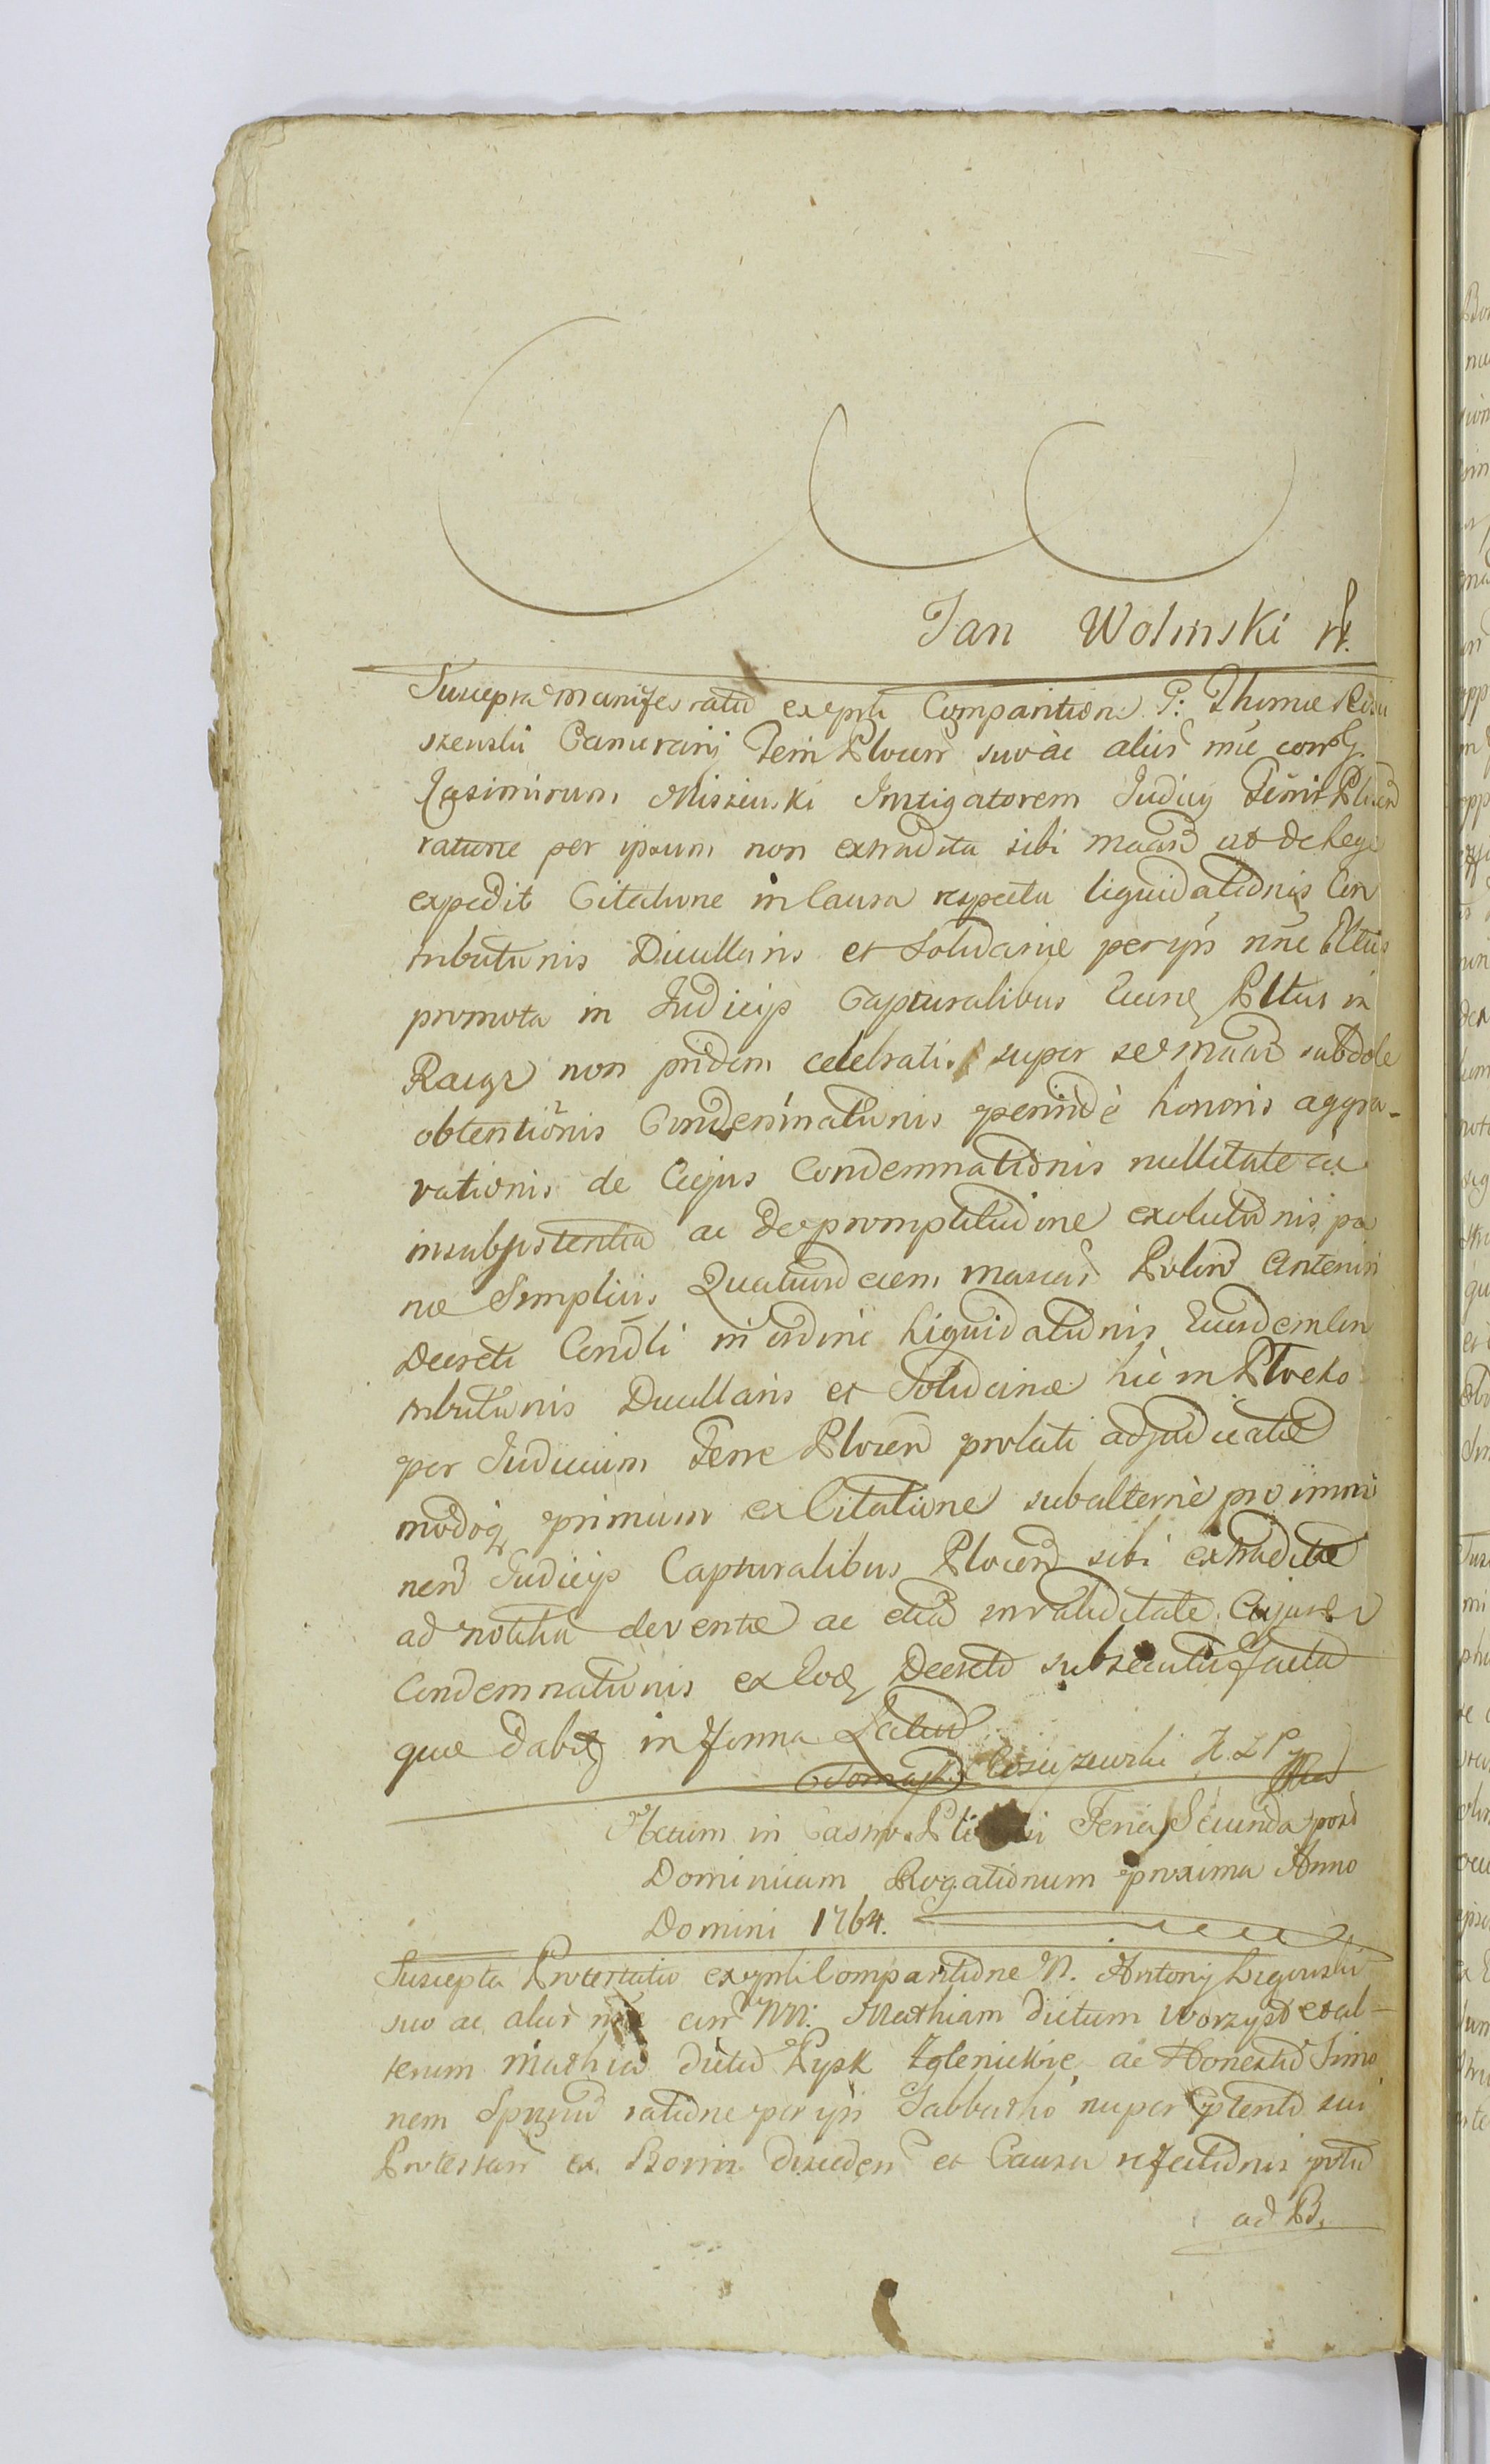 Jan Wolinski
Suscepta Manifestatio ex gnli Comparitione P: Thomæ
szewski Camerarii Terræ Plocen suo ac aliis nnē contra G.
Casimirum Miszewski Instigatorem Judicii Terris Plocen
ratione per ipsum non extradita sibi ut de lege
expedit Citatione in Causa respectu liquidationis Con
tributionis Ducillaris et Solidariæ per ipsū nnē
promota in Judiciis Capturalibus
Raciąż non pridem celebratis super se subdole
obtentionis Condemnationis perinde honoris aggra-
vationis de Cujus Condemnationis nullitate et
insubsistentia ac de promptitudine exolutionis pæ
næ Simplicis Quatuordecim marcas Polon
Decreti Condti in ordine Liquidationis Ejusdem Con
tributionis Ducillaris et Solidariæ hic in Plocko
per Judicium Terræ Plocen prolati adjudicatæ
modoq primum ex Citatione subalterne pro immi
nen Judiciis Capturalibus Plocen sibi extradita
ad notitiā deventæ ac etiā invaliditate Cujusvis
Condemnationis ex Eoq Decreto subsecutū factā
quæ dabit in forma Latiori
Tomasz K Z P
Actum in Castro Feria Secunda post
Dominicam Rogationum proxima Anno
Domini 1764.
Suscepta Protestatio ex gnli Comparitione N. Antonij Ligowski
suo ac aliis nnē con NN: Mathiam dictum Worzyst et al-
terum Mathiā dictū Pysk Zglenickie ac Honestū Simo
nem ratione per ipsū Sabbatho nuper
Protestan ex Bonis disceden et Causa refectionis
ad B.